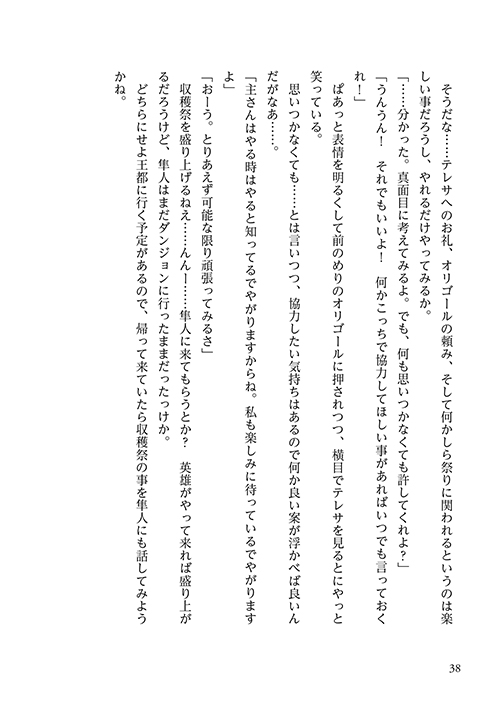 そうだな……テレサへのお礼、オリゴールの頼み、そして何かしら祭りに関われるというのは楽
しい事だろうし、やれるだけやってみるか。
「……分かった。真面目に考えてみるよ。でも、何も思いつかなくても許してくれよ？」
「うんうん！　それでもいいよ！　何かこっちで協力してほしい事があればいつでも言っておく
れ！」
　ぱあっと表情を明るくして前のめりのオリゴールに押されつつ、横目でテレサを見るとにやっと
笑っている。
　思いつかなくても……とは言いつつ、協力したい気持ちはあるので何か良い案が浮かべば良いん
だがなあ……。
「主さんはやる時はやると知ってるでやがりますからね。私も楽しみに待っているでやがります
よ」
「おーう。とりあえず可能な限り頑張ってみるさ」
　収穫祭を盛り上げるねえ……んんー……隼人に来てもらうとか？　英雄がやって来れば盛り上が
るだろうけど、隼人はまだダンジョンに行ったままだったっけか。
　どちらにせよ王都に行く予定があるので、帰って来ていたら収穫祭の事を隼人にも話してみよう
かね。
38